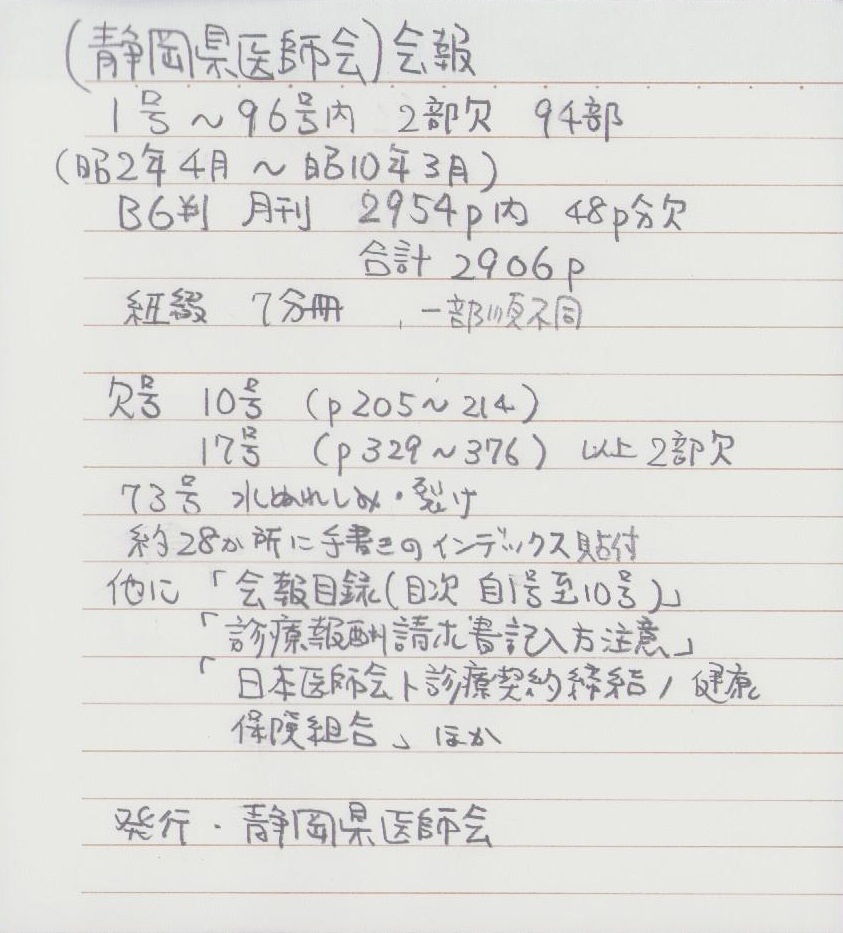 (静岡県医師会)会報
1号～96号内 2部欠 94部
(昭2年4月 ～ 昭10年3月)
B6判 月刊 2954p内 48p分欠
合計 2906p
紐綴 7分冊 、一部順不同
欠号 10号 (p205～214)
17号 (p329～376) 以上2部欠
73号 水ぬれしみ・裂け
約28か所に手書きのインデックス貼付
他に「会報目録(目次 自1号至10号)」
「診療報酬請求書記入方注意」
「日本医師会ト診療契約締結ノ健康
保険組合」ほか
発行・静岡県医師会